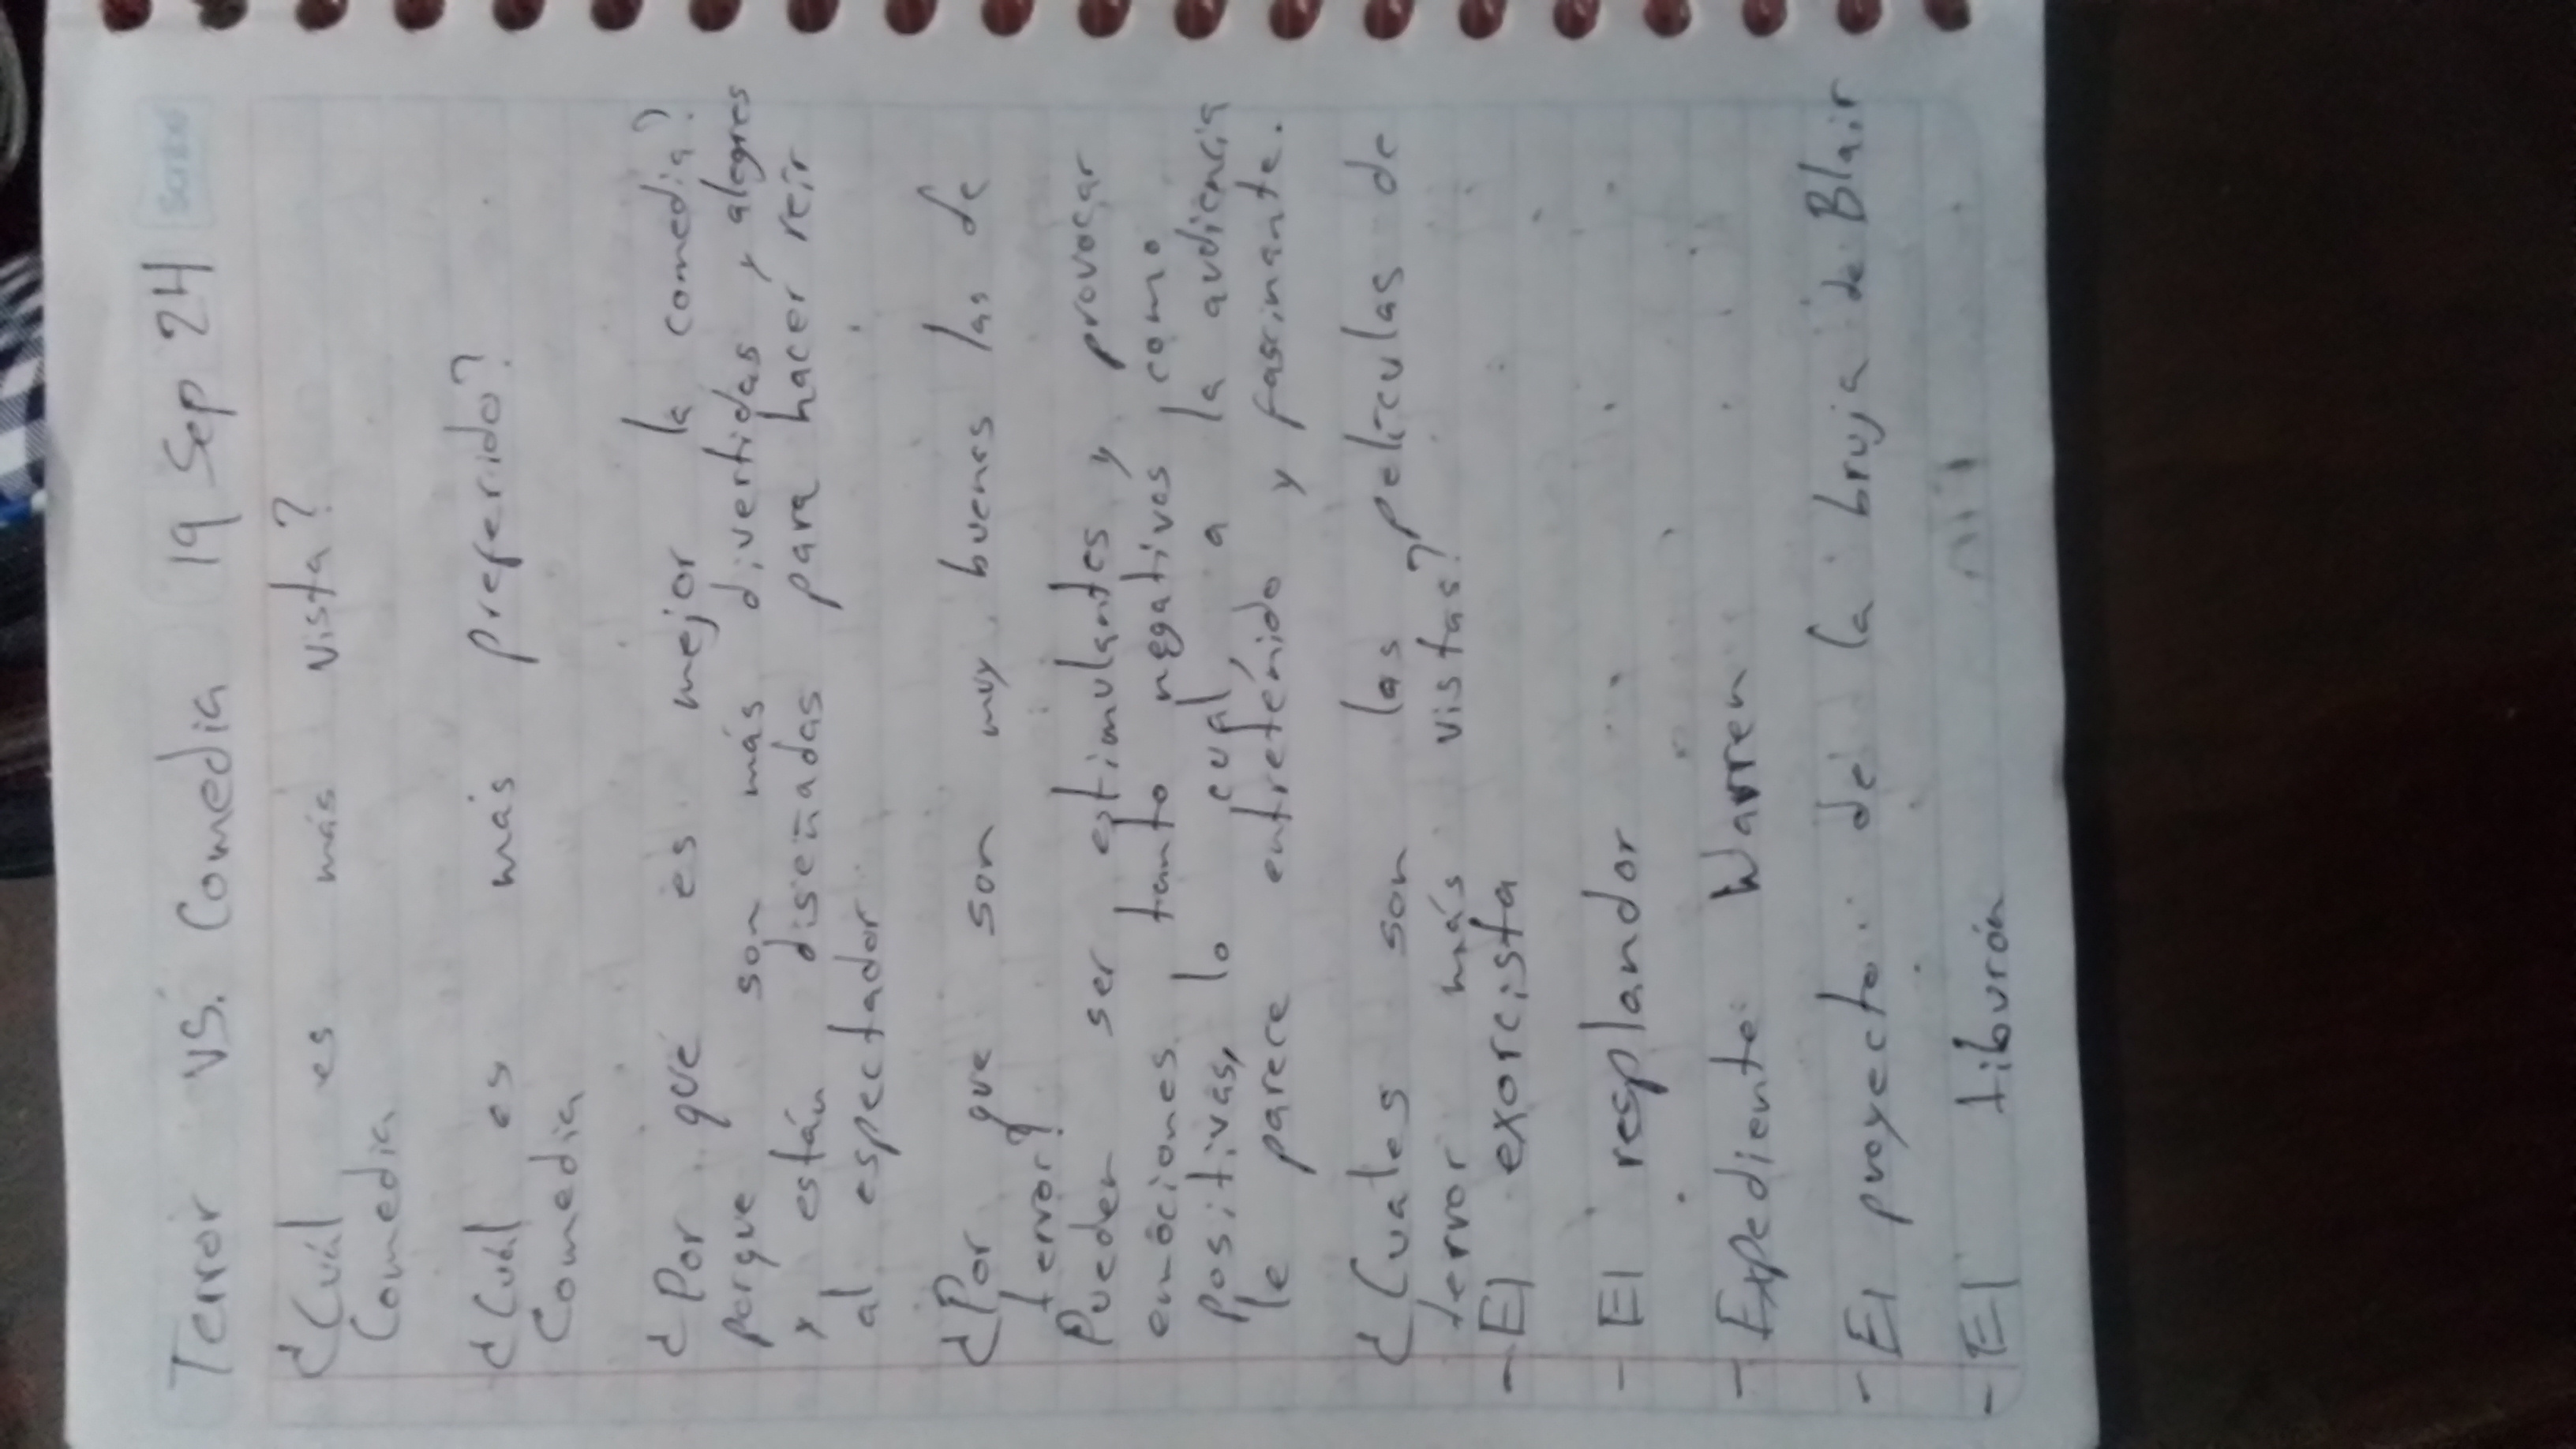 Terror vs. Comedia 19 Sep 24
¿Cuál es más vista?
Comedia
¿Cuál es más preferido?
Comedia
¿Por qué es mejor la comedia?
porque son más divertidas y alegres
y están diseñadas para hacer reír
al espectador
¿Por que son muy buenas las de
terror?
Pueden ser estimulantes y provocar
emociones tanto negativos como
positivas, lo cual a la audiencia
le parece entretenido y fascinante.
¿Cuales son las películas de
terror más vistas?
- El exorcista
- El resplandor
- Expediente Warren
- El proyecto de la bruja de Blair
- El tiburón